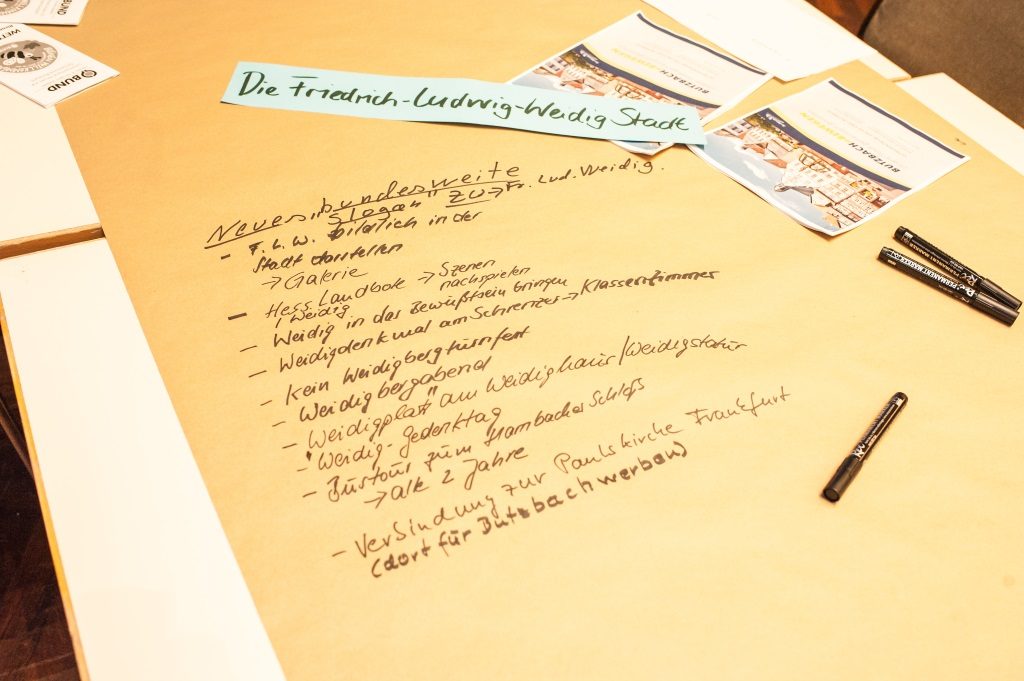 BUND
WETT
BUND
Die Friedrich-Ludwig-Weidig Stadt
BUTZBACH
BUTZBACH
Neues "bundesweite
Slogan" zu → Fr. Lud. Weidig.
- F. L. W. bildlich in der
Stadt darstellen
→ Galerie
- Hess. Landbote → Szenen
nachspielen
/ Weidig
- Weidig in das Bewußtsein bringen
- Weidigdenkmal am Schrenzer → Klassenzimmer
- Kein Weidigbergturnfest
Weidigbergabend
- Weidigplatz" am Weidighaus / Weidigstatur
- "Weidig-Gedenktag
- Bustour zum Hambacher Schloß
→ alle 2 Jahre
- Verbindung zur Paulskirche Frankfurt
(dort für Butzbach werben)
PERMANENT MARKER
PERMANENT MARKER